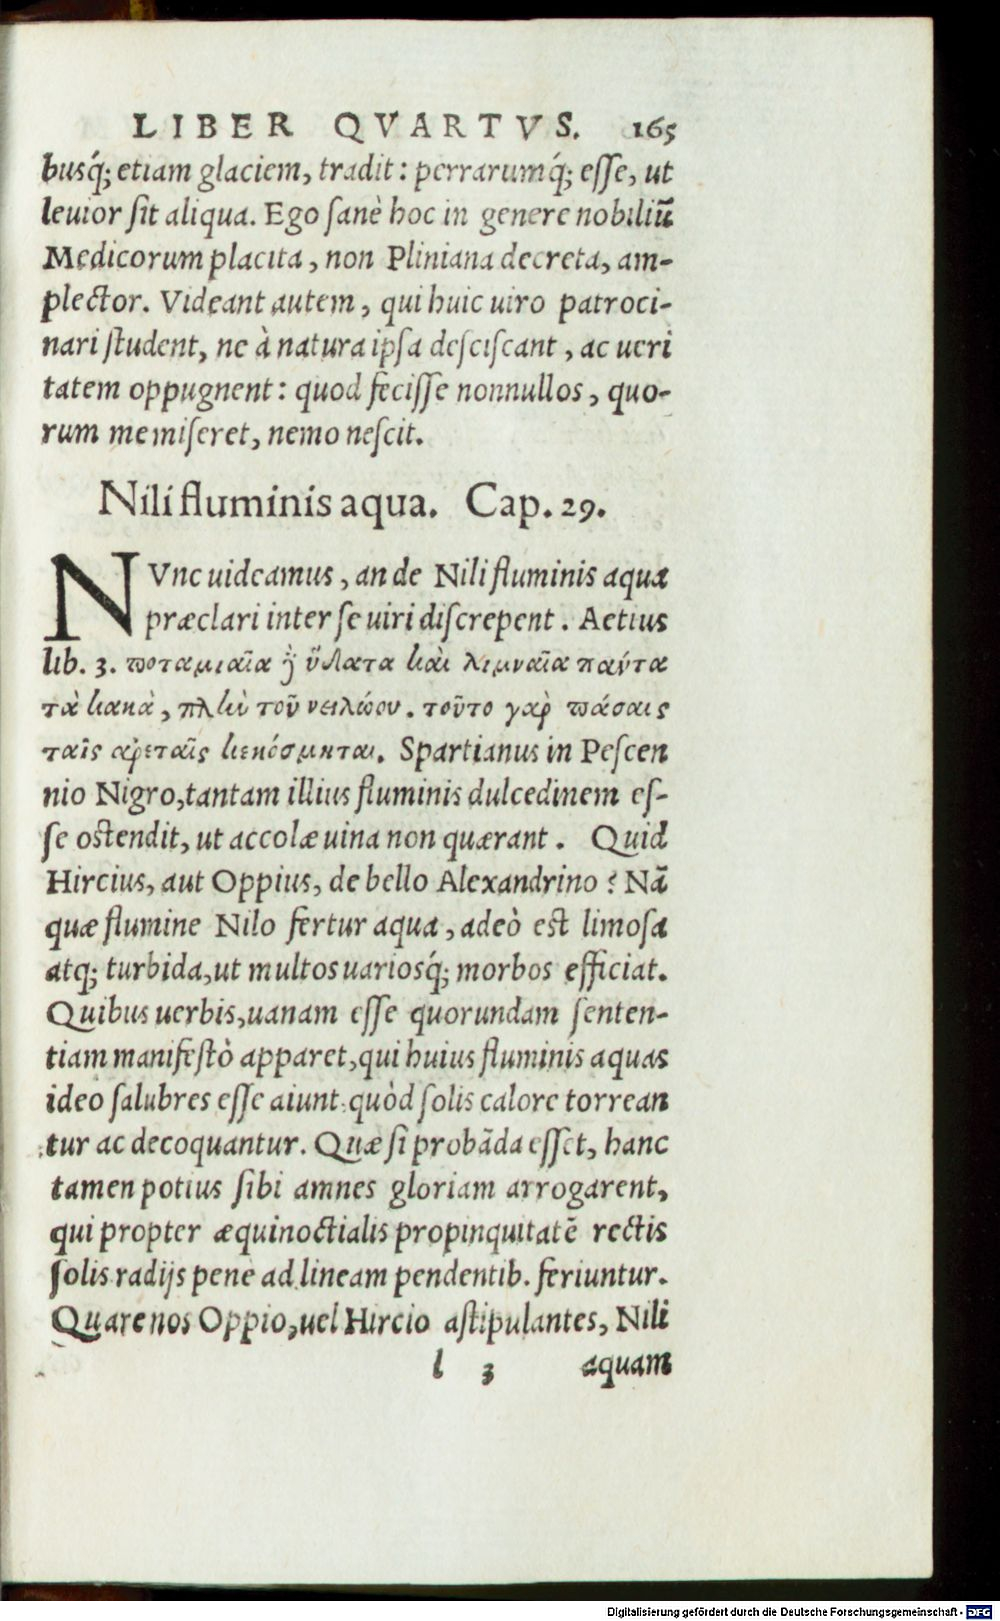 LIBER QVARTVS. 165
busq́; etiam glaciem, tradit: perrarumq́; esse, ut
leuior sit aliqua. Ego sanè hoc in genere nobiliū
Medicorum placita, non Pliniana decreta, am-
plector. Videant autem, qui huic uiro patroci-
nari student, ne à natura ipsa desciscant, ac ueri
tatem oppugnent: quod fecisse nonnullos, quo-
rum me miseret, nemo nescit.
Nili fluminis aqua. Cap. 29.
NVnc uideamus, an de Nili fluminis aqua
præclari inter se uiri discrepent. Aetius
lib. 3. ποταμιαῖα ὕδατα καὶ λιμναῖα πάντα
τὰ κακὰ, πλὴν τοῦ νειλώου. τοῦτο γὰρ πάσαις
ταῖς ἀρεταῖς κεκόσμηται. Spartianus in Pescen
nio Nigro, tantam illius fluminis dulcedinem es-
se ostendit, ut accolæ uina non quærant. Quid
Hircius, aut Oppius, de bello Alexandrino? Nā
quæ flumine Nilo fertur aqua, adeò est limosa
atq; turbida, ut multos uariosq́; morbos efficiat.
Quibus uerbis, uanam esse quorundam senten-
tiam manifestò apparet, qui huius fluminis aquas
ideo salubres esse aiunt, quòd solis calore torrean
tur ac decoquantur. Quæ si probāda esset, hanc
tamen potius sibi amnes gloriam arrogarent,
qui propter æquinoctialis propinquitatē rectis
solis radijs pene ad lineam pendentib. feriuntur.
Quare nos Oppio, uel Hircio astipulantes, Nili
l 3 aquam
Digitalisierung gefördert durch die Deutsche Forschungsgemeinschaft - DFG